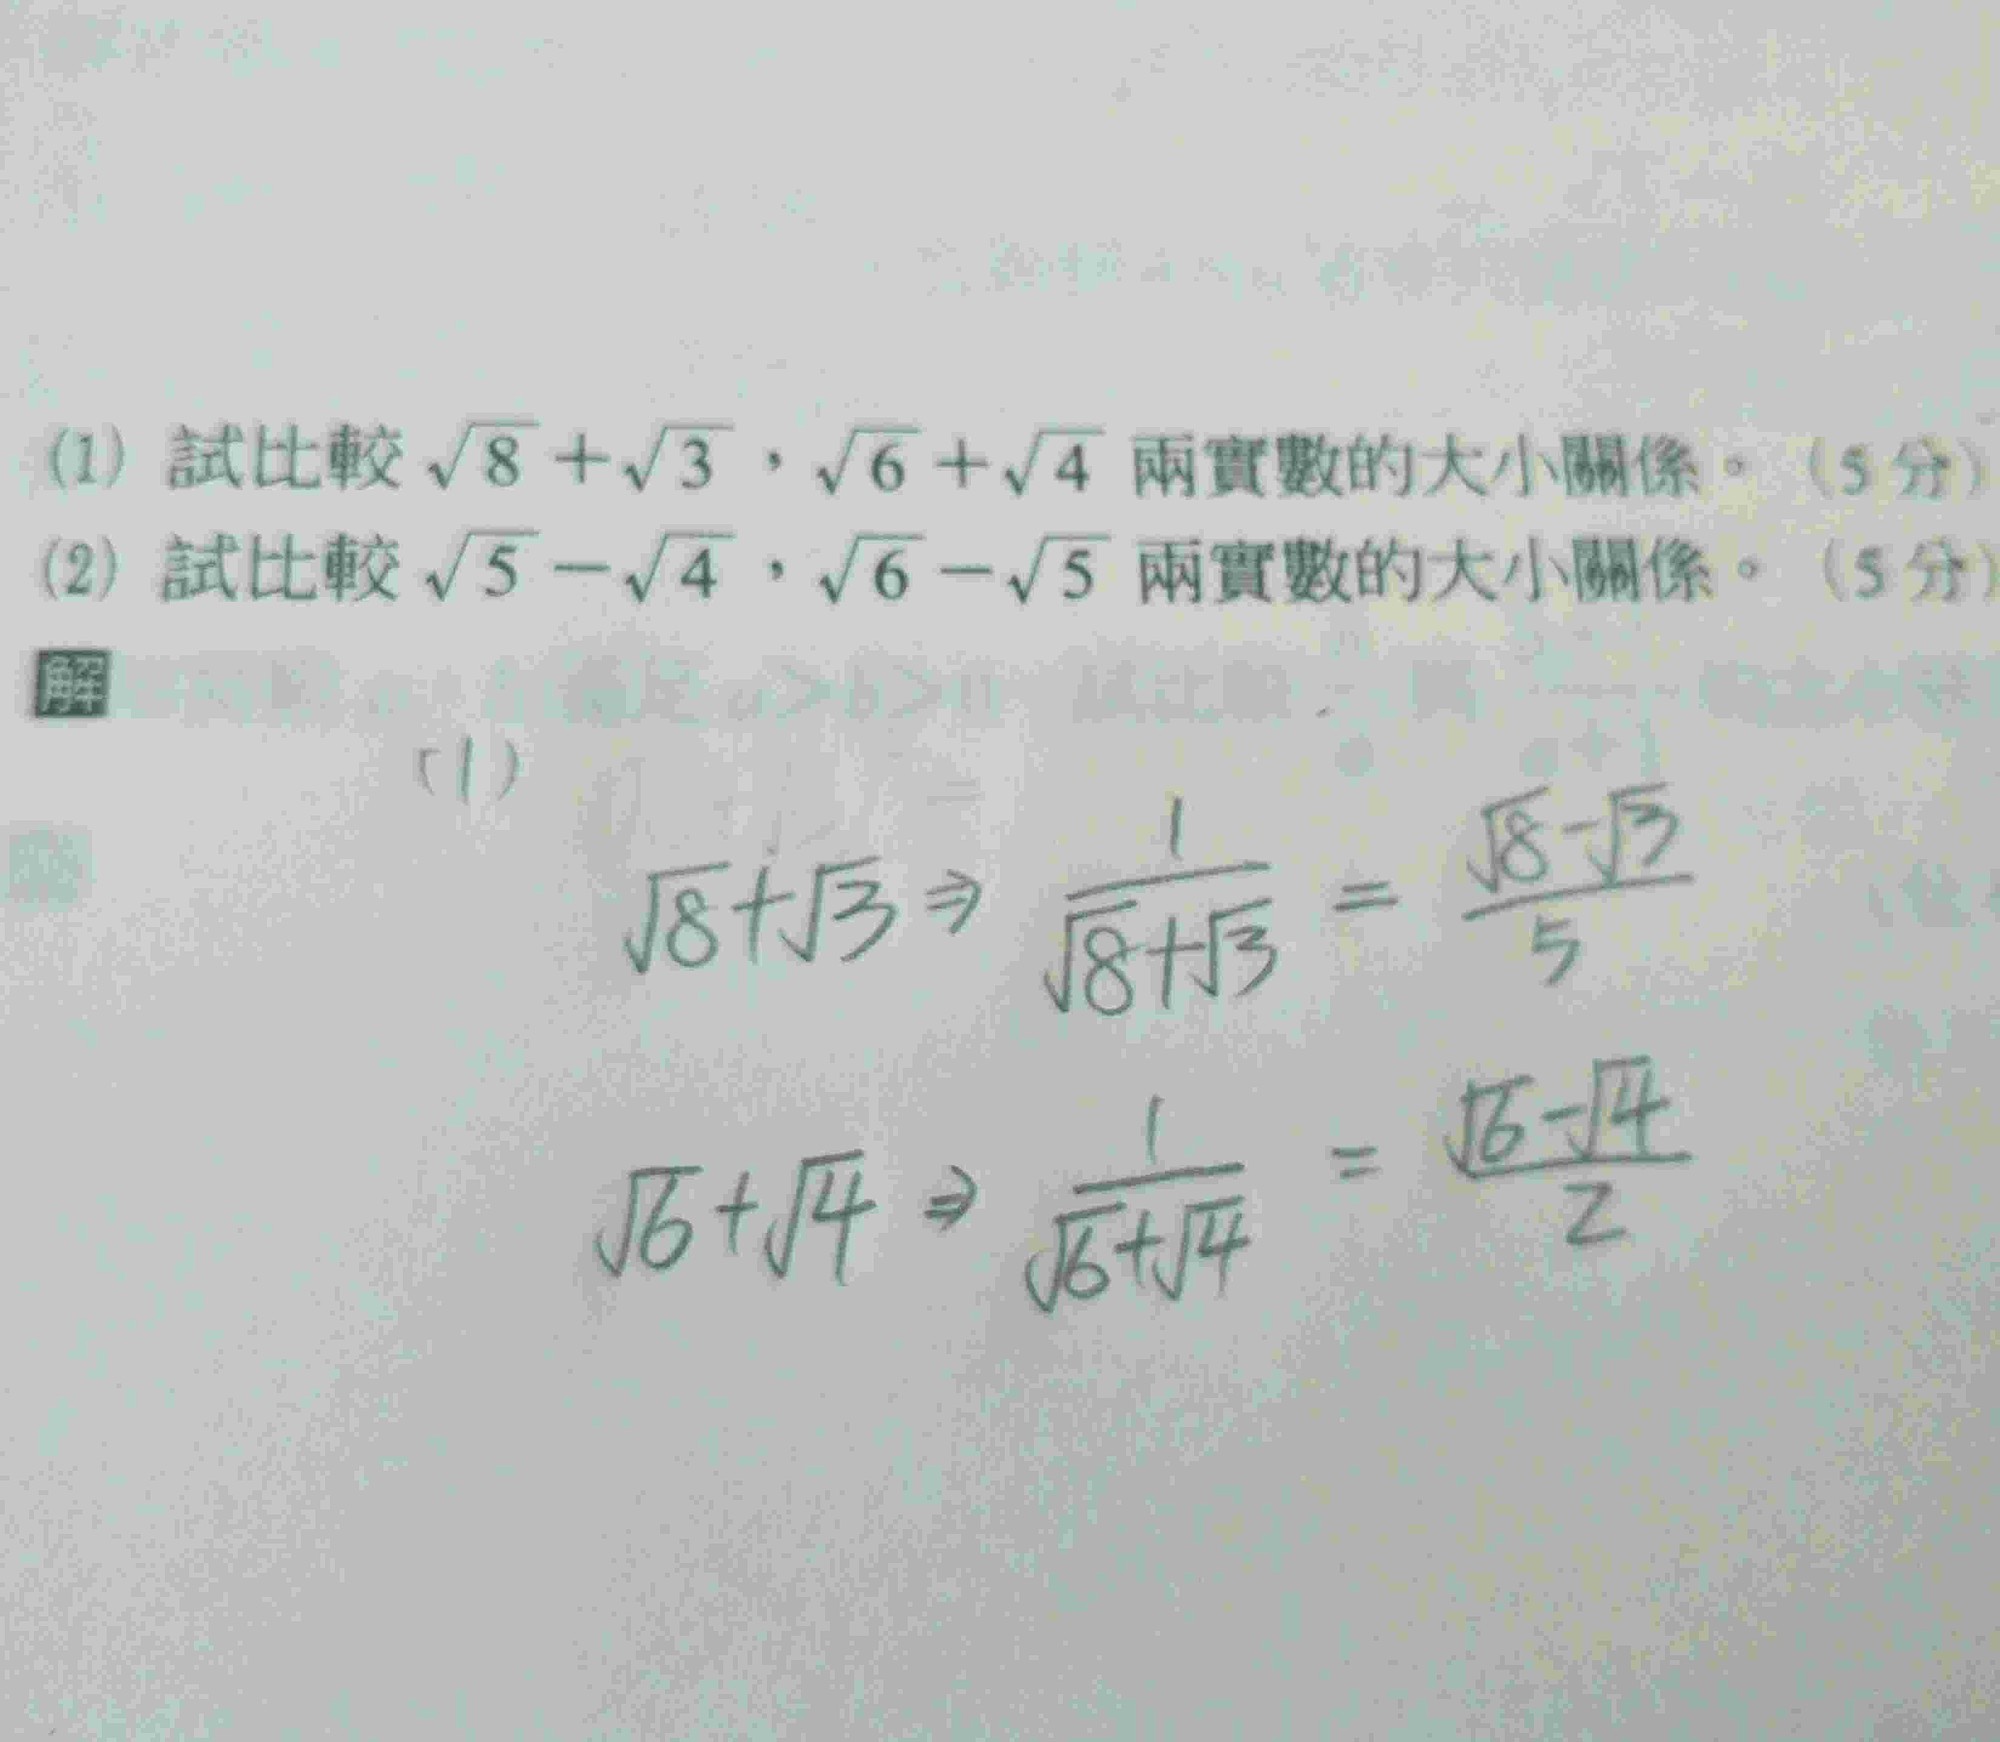 (1) 試比較 √8 + √3 , √6 + √4 兩實數的大小關係。(5 分)
(2) 試比較 √5 − √4 , √6 − √5 兩實數的大小關係。(5 分)
解
(1)
√8+√3 ⇒ 1/(√8+√3) = (√8-√3)/5
√6+√4 ⇒ 1/(√6+√4) = (√6-√4)/2